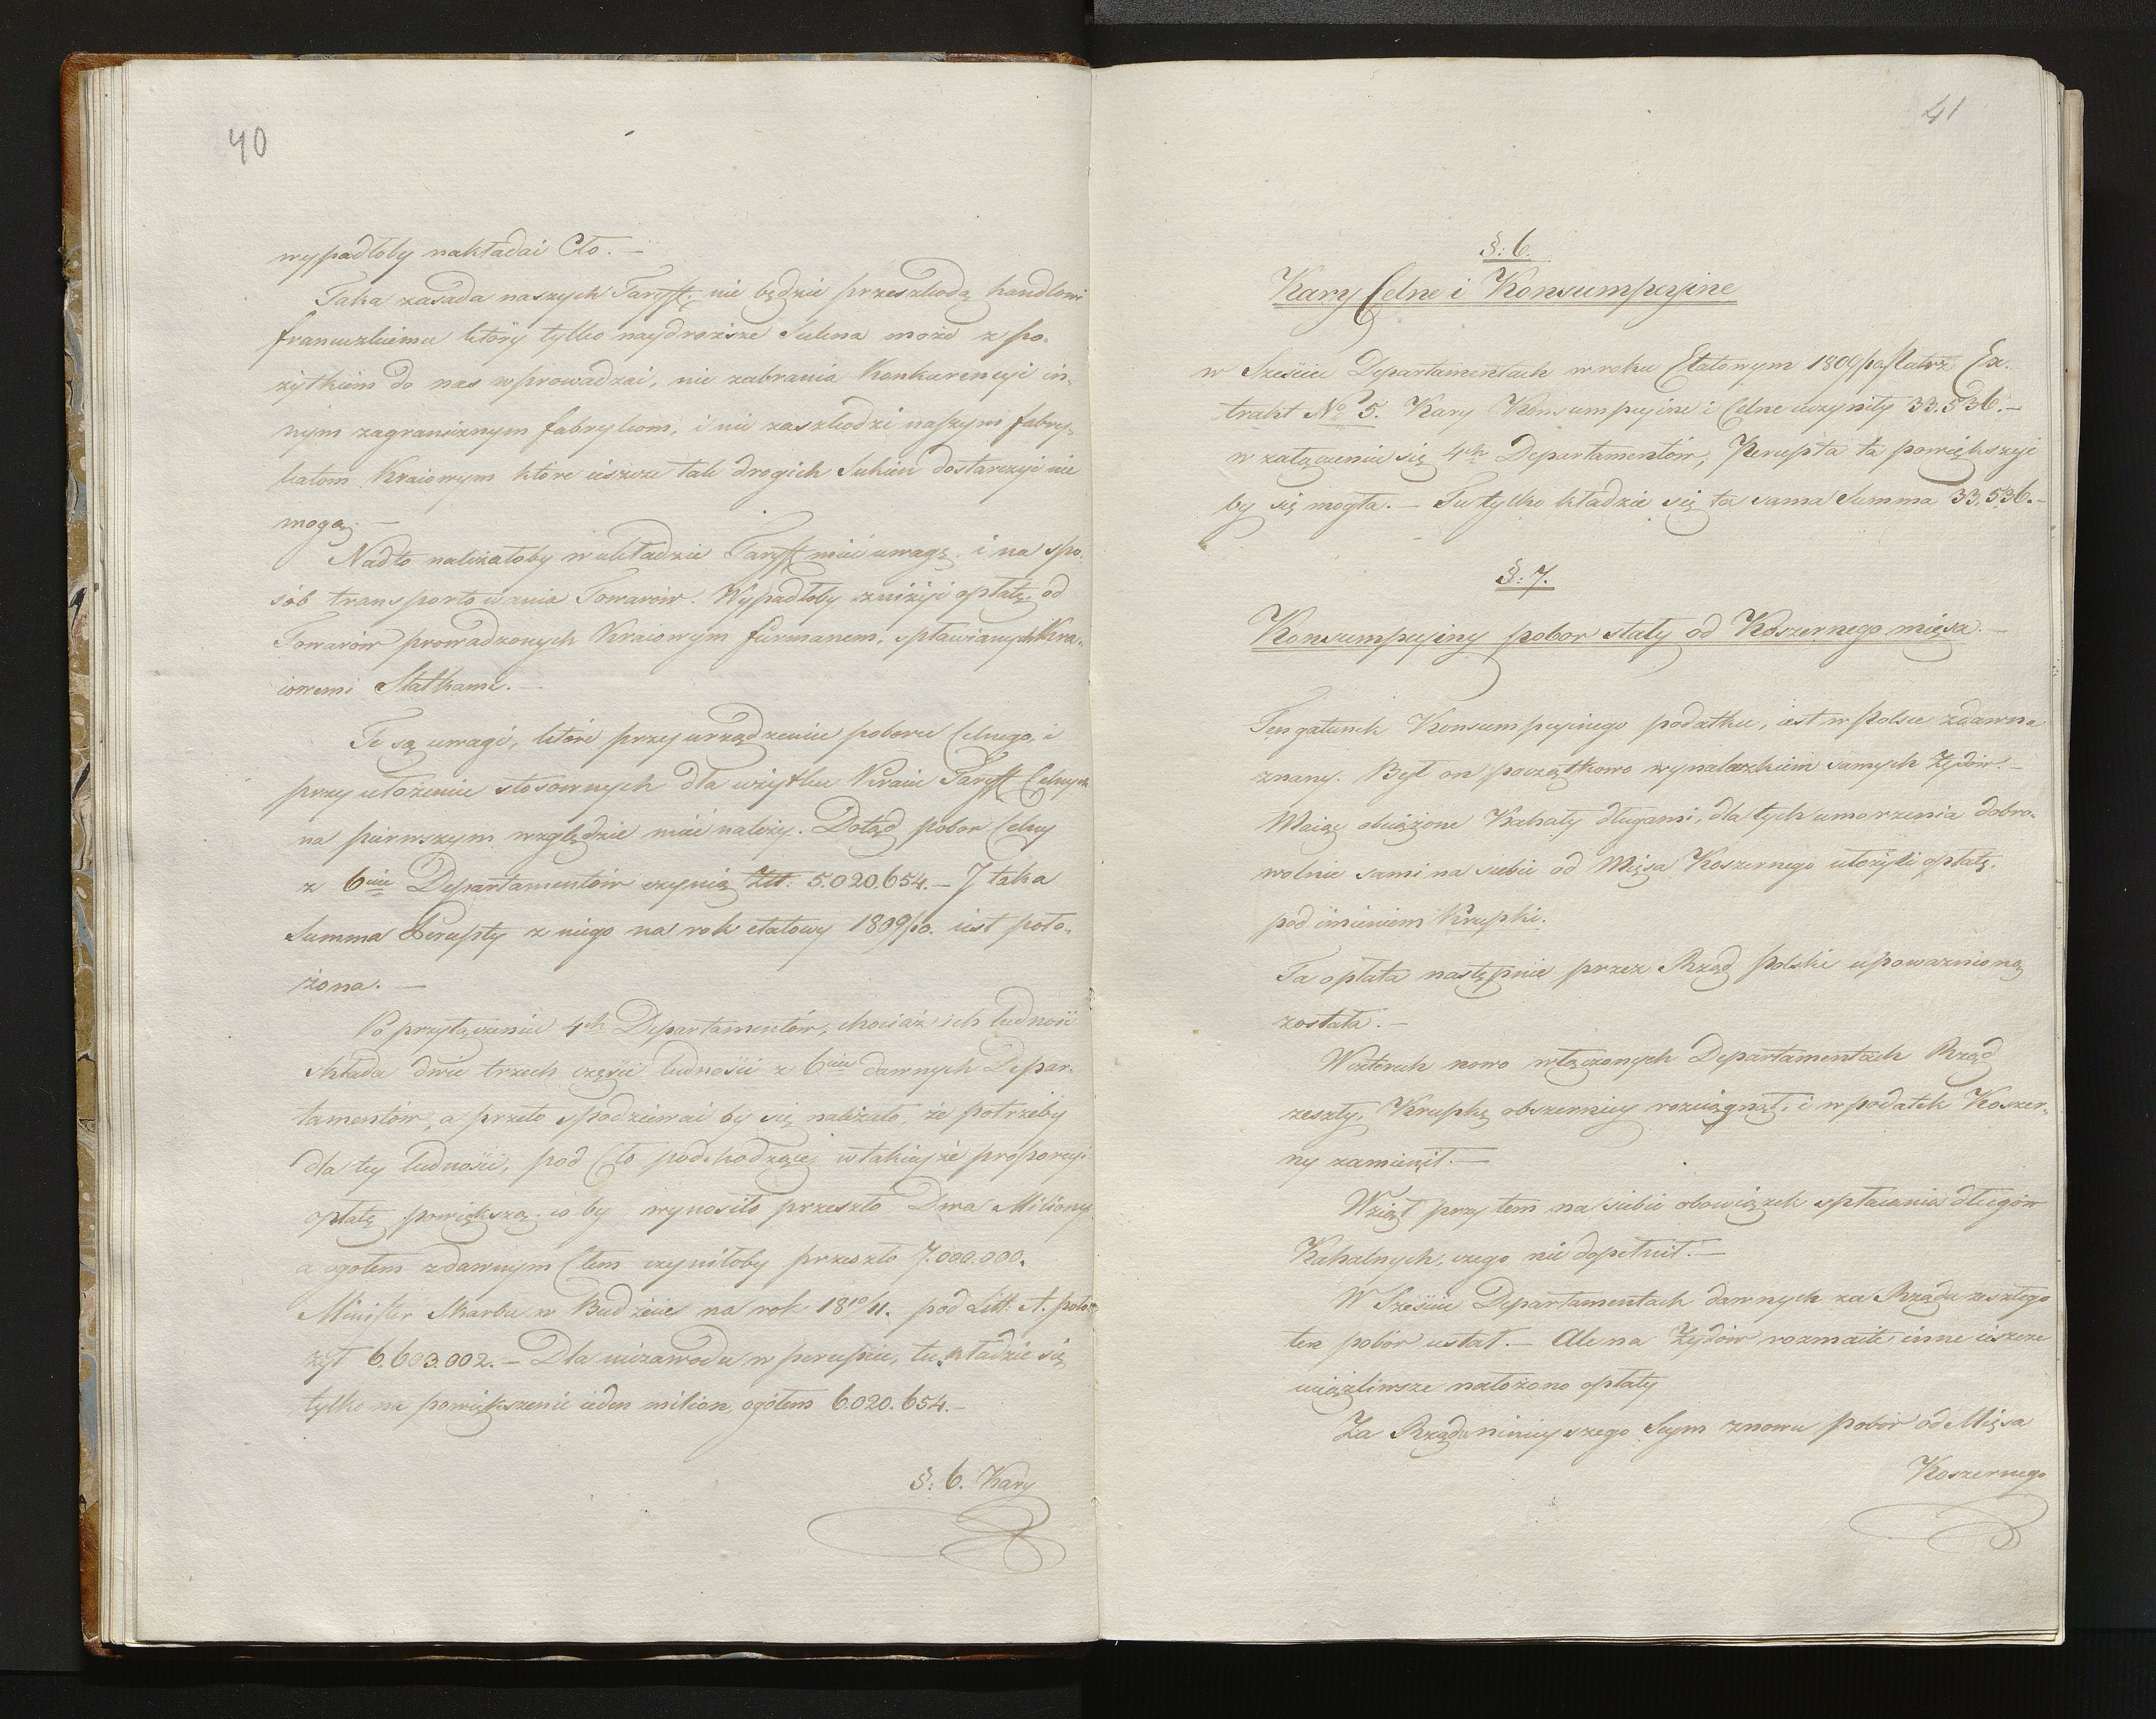 40
wypadłoby nakładać Cło. —
Taka zasada naszych Taryff. nie będzie przeszkodą handlowi
francuzkiemu który tylko naydroższe Sukna może z po-
żytkiem do nas wprowadzać, nie zabrania Konkurencyi in-
nym zagranicznym fabrykom, i nie zaszkodzi naszym fabry-
katom Kraiowym które ieszcze tak drogich Sukien dostarczyć nie
mogą. —
Nadto należałoby w układzie Taryff mieć uwagę. i na spo-
sób transportowania Towarów. Wypadłoby zniżyć opłatę od
Towarów prowadzonych Kraiowym furmanem, spławianych Kra-
iowemi Statkami. —
Te są uwagi, które przy urządzeniu poboru Celnego, i
przy ułożeniu stosownych dla użytku Kraiu Taryff Celnych
na pierwszym względzie mieć należy. Dotąd pobor Celny
z 6ciu Departamentów czynią Złt: 5.020.654. — I taka
Summa Percepty z niego na rok etatowy 1809/10. iest poło-
żona. —
Po przyłączeniu 4ch Departamentów, chociaż ich ludność
składa dwie trzech części ludności z 6ciu dawnych Depar-
tamentów, a przeto spodziewać by się należało, że potrzeby
dla tey ludności, pod Cło podchodzącey w takieyże proporcyi
opłatę powiększą. co by wynosiło przeszło Dwa Miliony
a ogołem z dawnym Cłem czyniłoby przeszło 7.000.000.
Minister Skarbu w Budżecie na rok 1810/11. pod Litt. A. poło-
żył 6.603.002. — Dla niezawodu w percepcie, tu kładzie się
tylko na powiększenie ieden milion, ogółem 6.020.654. —
§: 6. Kary
41
§: 6.
Kary Celne i Konsumpcyine
w Sześciu Departamentach w roku Etatowym 1809/10 patrz Ex-
trakt No 5. Kary Konsumpcyine i Celne uczyniły 33.536. —
w załączeniu się 4ch Departamentów, Percepta ta powiększyć
by się mogła. — Tu tylko kładzie się ta sama Summa 33,536. —
§: 7.
Konsumpcyiny pobor stały od Koszernego mięsa. —
Ten gatunek Konsumpcyinego podatku, iest w Polsce zdawna
znany. Był on początkowo wynalazkiem samych Żydów. —
Maiąc obciążone Kahały długami, dla tych umorzenia dobro-
wolnie sami na siebie od Mięsa Koszernego ułożyli opłatę,
pod imieniem Krupki.
Ta opłata następnie przez Rząd polski upoważnioną
została. —
W czterech nowo włączonych Departamentach Rząd
zeszły, Krupkę obszerniey rozciągnął, i w podatek Koszer-
ny zamienił. —
Wziął przytem na siebie obowiązek spłacania długów
Kahalnych, czego nie dopełnił. —
W Sześciu Departamentach dawnych za Rządu zeszłego
ten pobór ustał. — Ale na Żydów rozmaite inne ieszcze
uciążliwsze nałożono opłaty
Za Rządu ninieyszego Seym znowu pobór od Mięsa
Koszernego